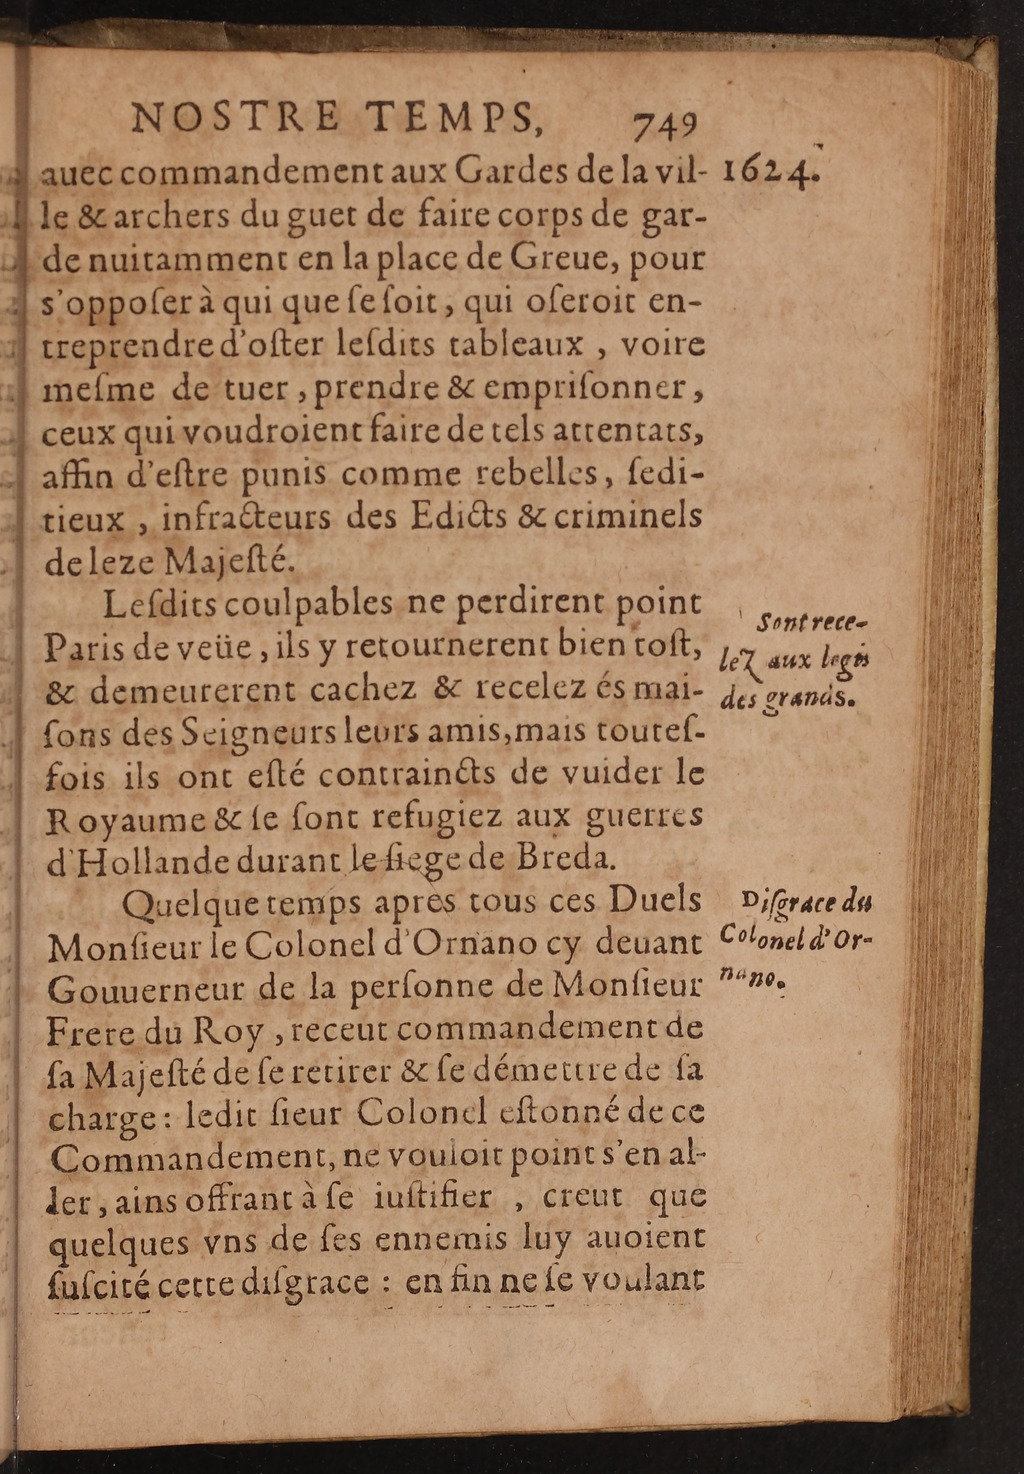 NOSTRE TEMPS, 749
auec commandement aux Gardes de la vil- 1624.
le & archers du guet de faire corps de gar-
de nuitamment en la place de Greue, pour
s'oppoſer à qui que ſe ſoit, qui oſeroit en-
treprendre d'oſter leſdits tableaux , voire
meſme de tuer , prendre & empriſonner,
ceux qui voudroient faire de tels attentats,
affin d'eſtre punis comme rebelles, ſedi-
tieux , infracteurs des Edicts & criminels
de leze Majeſté.
Leſdits coulpables ne perdirent point
Paris de veüe , ils y retournerent bien toſt,
& demeurerent cachez & recelez és mai-
ſons des Seigneurs leurs amis, mais touteſ-
fois ils ont eſté contraincts de vuider le
Royaume & ſe ſont refugiez aux guerres
d'Hollande durant le ſiege de Breda.
Sont rece-
lez aux logis
des grands.
Quelque temps apres tous ces Duels
Monſieur le Colonel d'Ornano cy deuant
Gouuerneur de la perſonne de Monſieur
Frere du Roy , receut commandement de
ſa Majeſté de ſe retirer & ſe démettre de ſa
charge : ledit ſieur Colonel eſtonné de ce
Commandement, ne vouloit point s'en al-
ler , ains offrant à ſe iuſtifier , creut que
quelques vns de ſes ennemis luy auoient
ſuſcité cette diſgrace : en fin ne ſe voulant
Diſgrace du
Colonel d'Or-
nano.